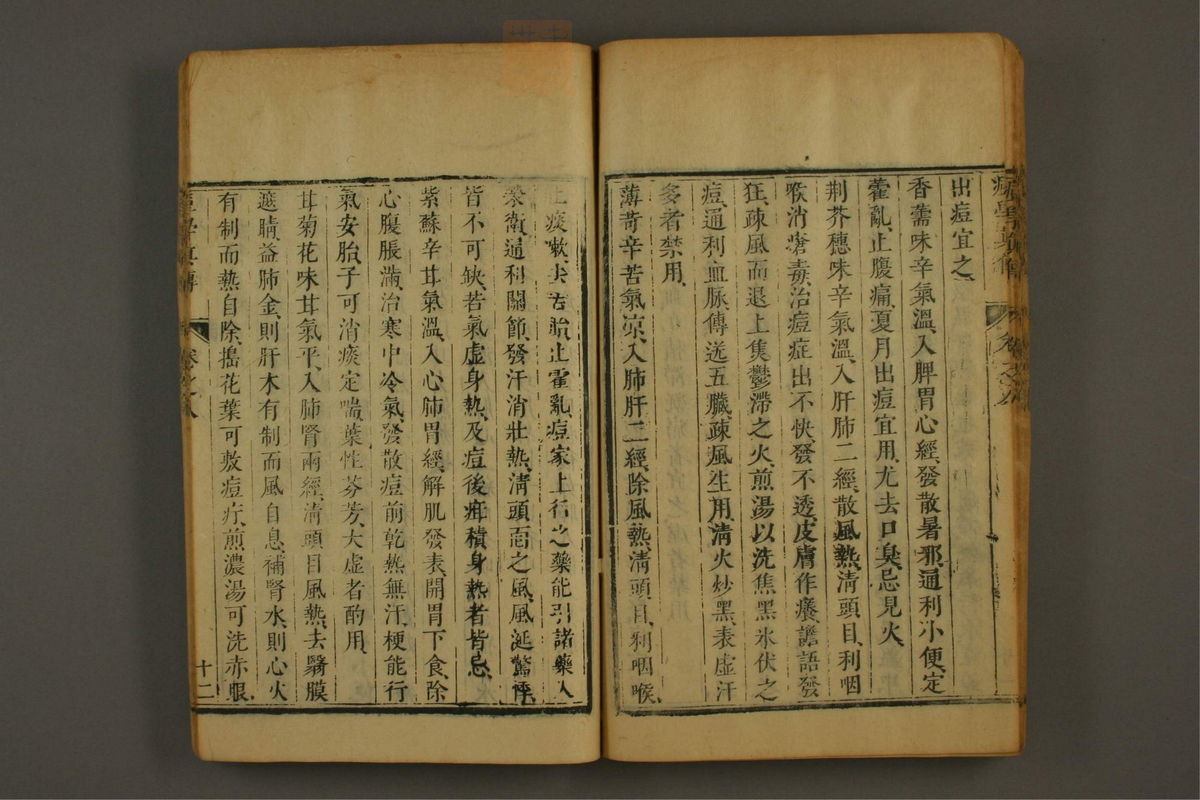 痘學真傳
卷之八
出痘宜之
香薷味辛氣溫入脾胃心經發散暑邪通利小便定
霍亂止腹痛夏月出痘宜用尤去口臭忌見火
荆芥穗味辛氣溫入肝肺二經散風熱清頭目利咽
喉消瘡毒治痘症出不快發不透皮膚作癢譫語發
狂疎風而退上焦鬱滯之火煎湯以洗焦黑氷伏之
痘通利血脉傳送五臟疎風生用清火炒黑表虛汗
多者禁用
薄荷辛苦氣凉入肺肝二經除風熱清頭目利咽喉
止痰嗽去舌胎止霍亂痘家上行之藥能引諸藥入
榮衛通利關節發汗消壯熱清頭面之風風涎驚悸
皆不可缺若氣虛身熱及痘後疳積身熱者皆忌
紫蘇辛甘氣溫入心肺胃經解肌發表開胃下食除
心腹脹滿治寒中冷氣發散痘前乾熱無汗梗能行
氣安胎子可消痰定喘葉性芬芳大虛者酌用
甘菊花味甘氣平入肺腎兩經清頭目風熱去翳膜
遮睛益肺金則肝木有制而風自息補腎水則心火
有制而熱自除搗花葉可敷痘疔煎濃湯可洗赤眼
痘學真傳
卷之八
十二